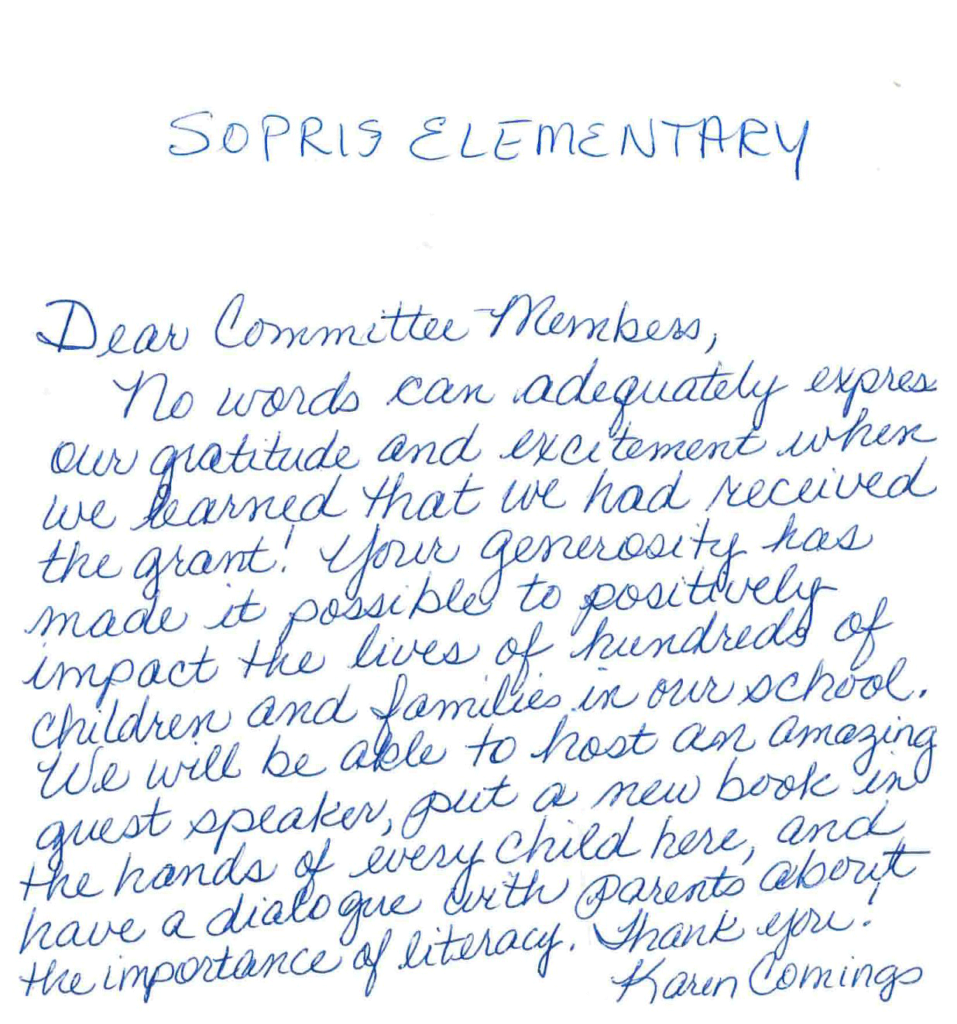 SOPRIS ELEMENTARY
Dear Committee Members,
No words can adequately expres
our gratitude and excitement when
we learned that we had received
the grant! Your generosity has
made it possible to positively
impact the lives of hundreds of
children and families in our school.
We will be able to host an amazing
guest speaker, put a new book in
the hands of every child here, and
have a dialogue with parents about
the importance of literacy. Thank you!
Karen Comings